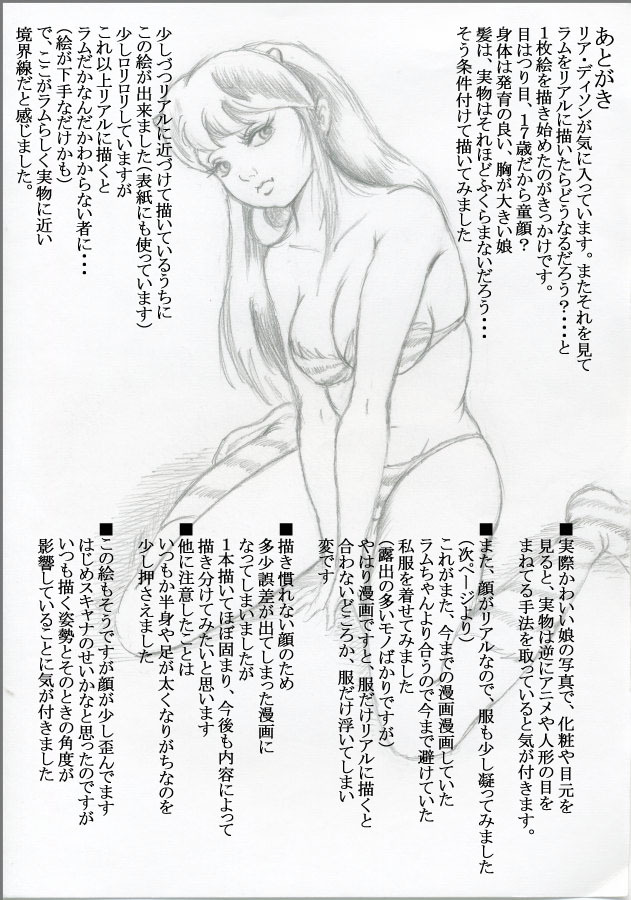 あとがき
リア・ディゾンが気に入っています。またそれを見て
ラムをリアルに描いたらどうなるだろう？・・・・と
１枚絵を描き始めたのがきっかけです。
目はつり目、１７歳だから童顔？
身体は発育の良い、胸が大きい娘
髪は、実物はそれほどふくらまないだろう・・・
そう条件付けて描いてみました
少しづつリアルに近づけて描いているうちに
この絵が出来ました（表紙にも使っています）
少しロリロリしていますが
これ以上リアルに描くと
ラムだかなんだかわからない者に・・・
（絵が下手なだけかも）
で、ここがラムらしく実物に近い
境界線だと感じました。
■実際かわいい娘の写真で、化粧や目元を
見ると、実物は逆にアニメや人形の目を
まねてる手法を取っていると気が付きます。
■また、顔がリアルなので、服も少し凝ってみました
（次ページより）
これがまた、今までの漫画漫画していた
ラムちゃんより合うので今まで避けていた
私服を着せてみました
（露出の多いモノばかりですが）
やはり漫画ですと、服だけリアルに描くと
合わないどころか、服だけ浮いてしまい
変です
■描き慣れない顔のため
多少誤差が出てしまった漫画に
なってしまいましたが
１本描いてほぼ固まり、今後も内容によって
描き分けてみたいと思います
■他に注意したことは
いつもか半身や足が太くなりがちなのを
少し押さえました
■この絵もそうですが顔が少し歪んでます
はじめスキャナのせいかなと思ったのですが
いつも描く姿勢とそのときの角度が
影響していることに気が付きました